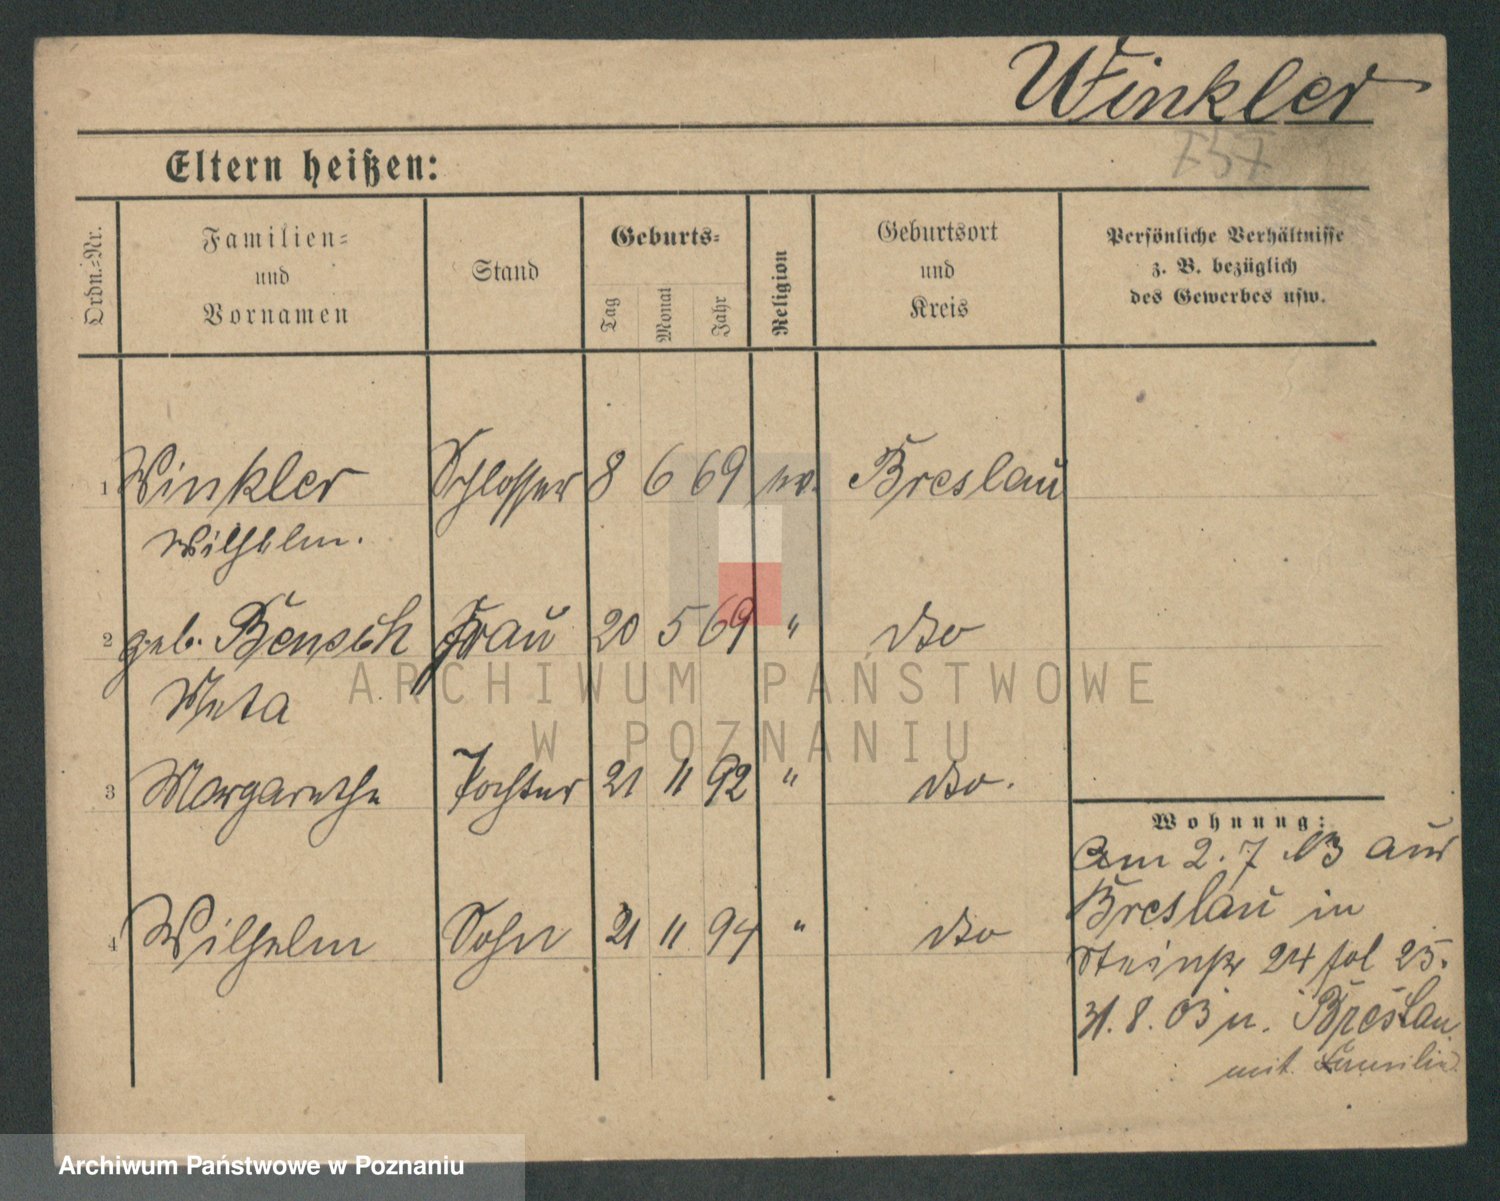 Winkler
757
Eltern heißen:
Ordn.-Nr.
Familien-
und
Vornamen
Stand
Geburts-
Tag
Monat
Jahr
Religion
Geburtsort
und
Kreis
Persönliche Verhältnisse
z. B. bezüglich
des Gewerbes usw.
1 Winkler Schlosser 8 6 69 ev. Breslau
Wilhelm.
2 geb. Bensch Frau 20 5 69 " dto
Meta
3 Margarethe Tochter 21 11 92 " dto.
4 Wilhelm Sohn 21 11 94 " dto
Wohnung:
Am 2. 7. 03 aus
Breslau in
Steinstr 24 fol 25.
31. 8. 03 n. Breslau
mit Familie
ARCHIWUM PAŃSTWOWE
W POZNANIU
Archiwum Państwowe w Poznaniu